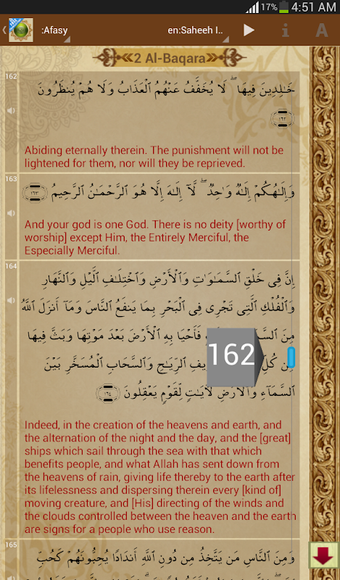 17% 4:51 AM
:Afasy en:Saheeh I..
2 Al-Baqara
162
خَـٰلِدِينَ فِيهَا ۖ لَا يُخَفَّفُ عَنْهُمُ ٱلْعَذَابُ وَلَا هُمْ يُنظَرُونَ
Abiding eternally therein. The punishment will not be
lightened for them, nor will they be reprieved.
163
وَإِلَـٰهُكُمْ إِلَـٰهٌ وَٰحِدٌ ۖ لَّآ إِلَـٰهَ إِلَّا هُوَ ٱلرَّحْمَـٰنُ ٱلرَّحِيمُ
And your god is one God. There is no deity [worthy of
worship] except Him, the Entirely Merciful, the
Especially Merciful.
164
إِنَّ فِى خَلْقِ ٱلسَّمَـٰوَٰتِ وَٱلْأَرْضِ وَٱخْتِلَـٰفِ ٱلَّيْلِ وَٱلنَّهَارِ
وَٱلْفُلْكِ ٱلَّتِى تَجْرِى فِى ٱلْبَحْرِ بِمَا يَنفَعُ ٱلنَّاسَ وَمَآ أَنزَلَ ٱللَّهُ
مِنَ فَأَحْيَا بِهِ ٱلْأَرْضَ بَعْدَ مَوْتِهَا وَبَثَّ فِيهَا
مِن كُلِّ ٱلرِّيَـٰحِ وَٱلسَّحَابِ ٱلْمُسَخَّرِ بَيْنَ
162
ٱلسَّمَآءِ وَٱلْأَرْضِ لَـَٔايَـٰتٍ لِّقَوْمٍ يَعْقِلُونَ
Indeed, in the creation of the heavens and earth, and
the alternation of the night and the day, and the [great]
ships which sail through the sea with that which
benefits people, and what Allah has sent down from
the heavens of rain, giving life thereby to the earth after
its lifelessness and dispersing therein every [kind of]
moving creature, and [His] directing of the winds and
the clouds controlled between the heaven and the earth
are signs for a people who use reason.
165
وَمِنَ ٱلنَّاسِ مَن يَتَّخِذُ مِن دُونِ ٱللَّهِ أَندَادًا يُحِبُّونَهُمْ كَحُبِّ